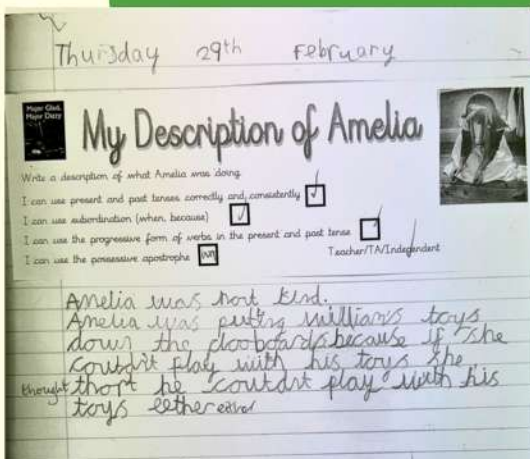 Thursday 29th February
Major Glad, Major Dizzy
My Description of Amelia
Write a description of what Amelia was doing.
I can use present and past tenses correctly and consistently
I can use subordination (when, because)
I can use the progressive form of verbs in the present and past tense
I can use the possessive apostrophe
Teacher/TA/Independent
Amelia was nort kind.
Amelia was putting william's toys
down the because if she
couldn't play with his toys she
thought thort he couldn't play with his
toys eether